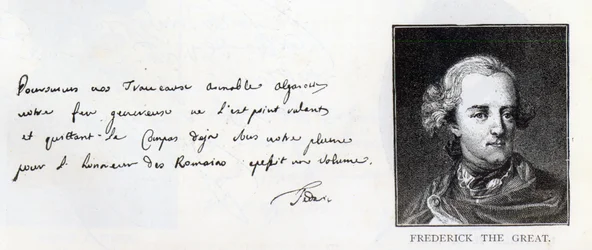 Poursuives vos Traveause aimable algaroti
votre feu genereuse ne s'est point ralenti
et quittant le Compas deja sous votre plume
pour l'honneur des Romains un volume.
Federic
FREDERICK THE GREAT.